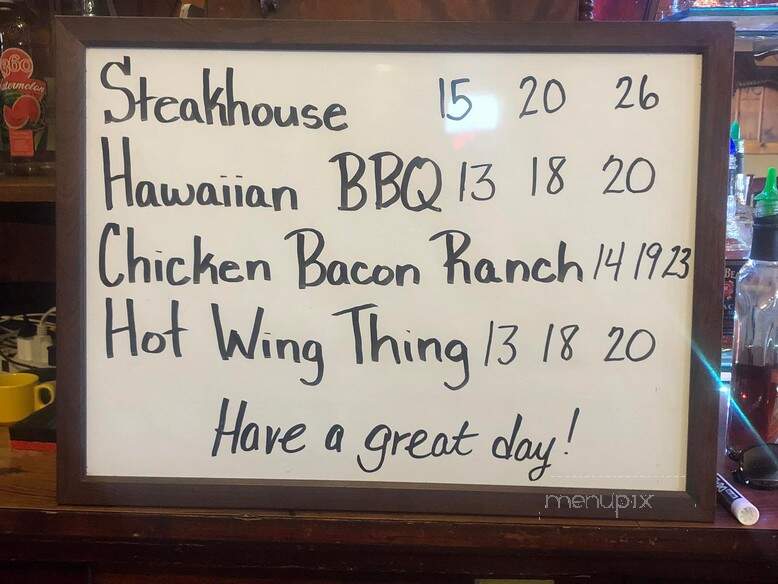 Steakhouse 15 20 26
Hawaiian BBQ 13 18 20
Chicken Bacon Ranch 14 19 23
Hot Wing Thing 13 18 20
Have a great day!
menupix
360